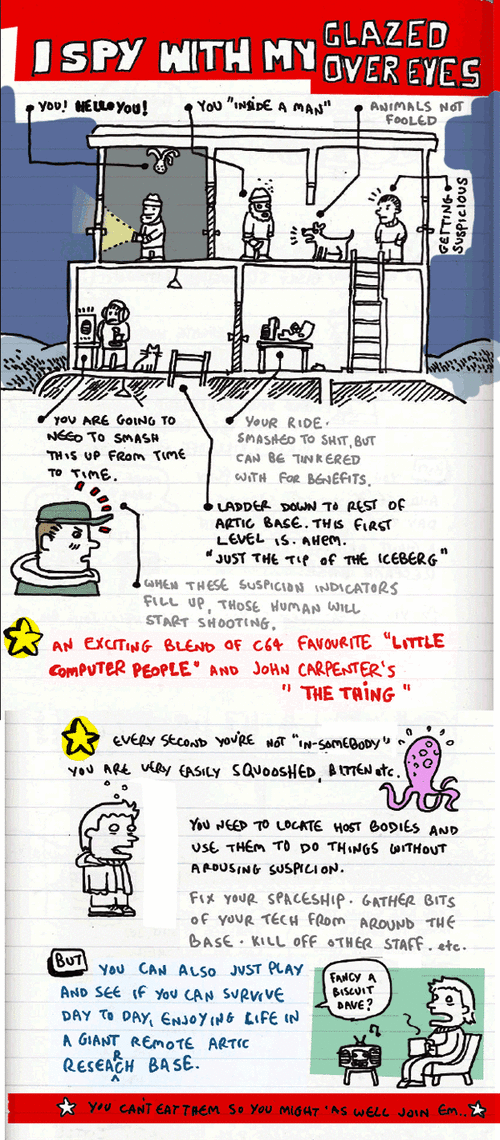 I SPY WITH MY GLAZED
OVER EYES
YOU! HELLO YOU!
YOU "INSIDE A MAN"
ANIMALS NOT
FOOLED
GETTING
SUSPICIOUS
YOU ARE GOING TO
NEED TO SMASH
THIS UP FROM TIME
TO TIME.
YOUR RIDE.
SMASHED TO SHIT, BUT
CAN BE TINKERED
WITH FOR BENEFITS.
LADDER DOWN TO REST OF
ARTIC BASE. THIS FIRST
LEVEL IS. AHEM.
"JUST THE TIP OF THE ICEBERG"
WHEN THESE SUSPICION INDICATORS
FILL UP, THOSE HUMAN WILL
START SHOOTING.
AN EXCITING BLEND OF C64 FAVOURITE "LITTLE
COMPUTER PEOPLE" AND JOHN CARPENTER'S
"THE THING"
EVERY SECOND YOU'RE NOT "IN-SOMEBODY"
YOU ARE VERY EASILY SQUOOSHED, BITTEN etc.
YOU NEED TO LOCATE HOST BODIES AND
USE THEM TO DO THINGS WITHOUT
AROUSING SUSPICION.
FIX YOUR SPACESHIP. GATHER BITS
OF YOUR TECH FROM AROUND THE
BASE. KILL OFF OTHER STAFF. etc.
BUT YOU CAN ALSO JUST PLAY
AND SEE IF YOU CAN SURVIVE
DAY TO DAY, ENJOYING LIFE IN
A GIANT REMOTE ARTIC
RESEARCH BASE.
FANCY A
BISCUIT
DAVE?
YOU CAN'T EAT THEM SO YOU MIGHT 'AS WELL JOIN EM..